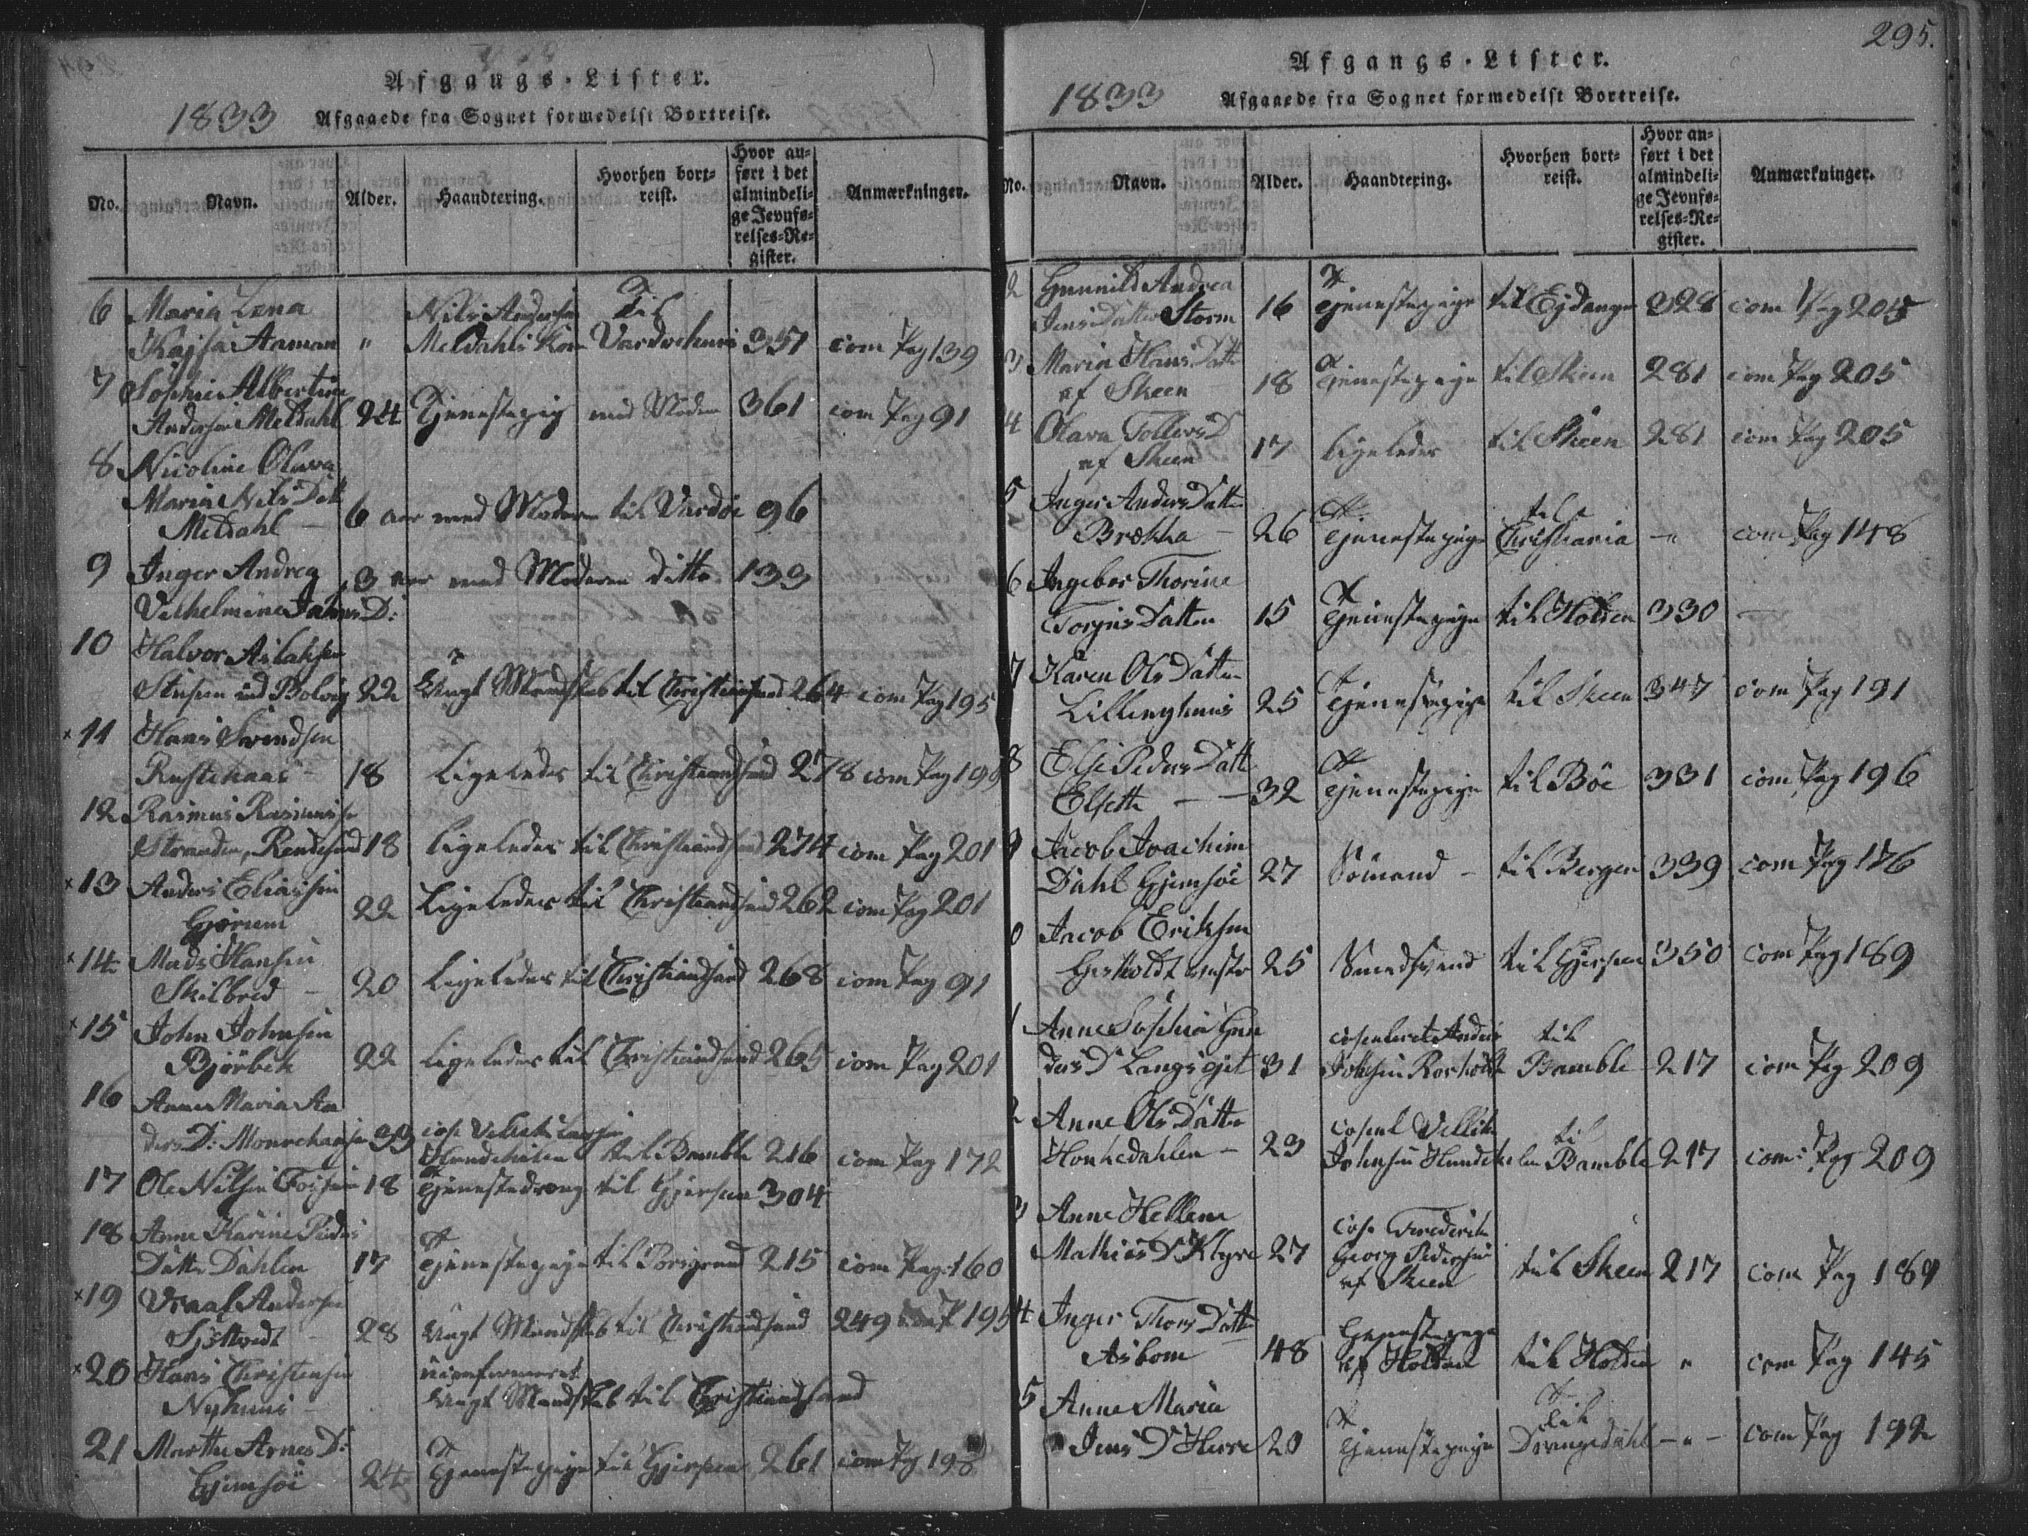 Afgangs-Lister.
1833 Afgaaede fra Sognet formedelst Bortreise.
No. Navn. Alder. Haandtering. Hvorhen bortreist. Hvor anført i det almindelige Jevnførelses-Register. Anmærkninger.
6 Maria Lena Nils Andersen Til
Kajsa Aaman " Meldahls Kone Vardoehuus 357 com Pag 139
7 Sophie Albertine
Andersen Meldahl 24 Tjenestepig med Moderen 361 com Pag 91
8 Nicoline Olava
Maria Nils Datt
Meldahl – 6 aar med Moderen til Vardöe 96
9 Inger Andrea 3 aar med Moderen ditto 133
Vilhelmine Johns D:
10 Halvor Aslaksen
Stusen ved Bolvig 22 Ungt Mandskab til Christiansand 264 com Pag 195
x 11 Hans Svendsen
18 ligeledes til Christiansand 278 com Pag 199
12 Rasmus Rasmusse
Stranden, 18 ligeledes til Christiansand 274 com Pag 201
x 13 Anders Eliassen
Gjørum 22 ligeledes til Christiansand 262 com Pag 201
x 14 Mads Hansen
Skilbred – 20 ligeledes til Christiansand 268 com Pag 91
x 15 John Johnsen
Bjørbek 22 ligeledes til Christiansand 265 com Pag 201
16 Anne Maria An
ders D: 33 til Bamble 216 com Pag 172
17 Ole Nilsen Fossen 18 Tjenestedreng til Gjerpen 304
18 Anne Karine Peders
Datter Dahlen 17 Tjenestepige til Porsgrund 215 com Pag 160
x 19 Vraal Andersen
28 Ungt Mandskab til Christiansand 249 com P 195
x 20 Hans Christensen
Nyhuus – Ungt Mandskab til Christiansand
21 Marthe Arnes D:
Gjemsöe 24 Tjenestepige til Gjerpen 261 com Pag 198
295.
Afgangs-Lister.
1833 Afgaaede fra Sognet formedelst Bortreise.
No. Navn. Alder. Haandtering. Hvorhen bortreist. Hvor anført i det almindelige Jevnførelses-Register. Anmærkninger.
2 Gunnild Andrea
Jens Datter Storm 16 Tjenestepige til Ejdanger 328 com Pag 205
3 Maria Hans Datt
af Skeen 18 Tjenestepige til Skeen 281 com Pag 205
4 Olava Tollevs D
af Skeen 17 ligeledes til Skeen 281 com Pag 205
5 Inger Anders Datter til
Brækka – 26 Tjenestepige Christiania – " com Pag 148
6 Ingebor Thorine
Torjus Datter 15 Tjenestepige til Holden 330 –
7 Karen Ols Datter
25 Tjenestepige til Skeen 347 com Pag 191
8 Else Peders Datt
Elseth – – 32 Tjenestepige til Böe 331 com Pag 196
9 Jacob Joachim
Dahl Gjemsöe 27 Sömand – til Bergen 339 com Pag 176
0 Jacob Eriksen
25 Smedsvend til Gjerpen 350 com Pag 189
1 Anne Sophia Gun til
ders D Langsæjet 31 Bamble 217 com Pag 209
2 Anne Ols Datter til
Honkedahlen – 23 Johnsen Bamble 217 com Pag 209
3 Anne Hellene Frederik
Mathias D Klyve 27 Georg Pedersen
af Skeen til Skeen 217 com Pag 189
4 Inger Thors Datter Tjenestepige
Aasbom 48 af Holden til Holden " com Pag 145
5 Anne Maria Til
Jens D Herre 20 Tjenestepige Drangedahl – " – com Pag 192